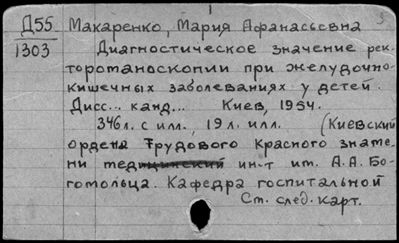 Д55
1303
Макаренко, Мария Афанасьевна
Диагностическое значение рек-
тороманоскопии при желудочно-
кишечных заболеваниях у детей.
Дисс... канд... Киев, 1954.
346л. с илл., 19 л. илл. (Киевский
ордена Трудового Красного знаме-
ни медицинский ин-т им. А.А. Бо-
гомольца. Кафедра госпитальной
См. след. карт.